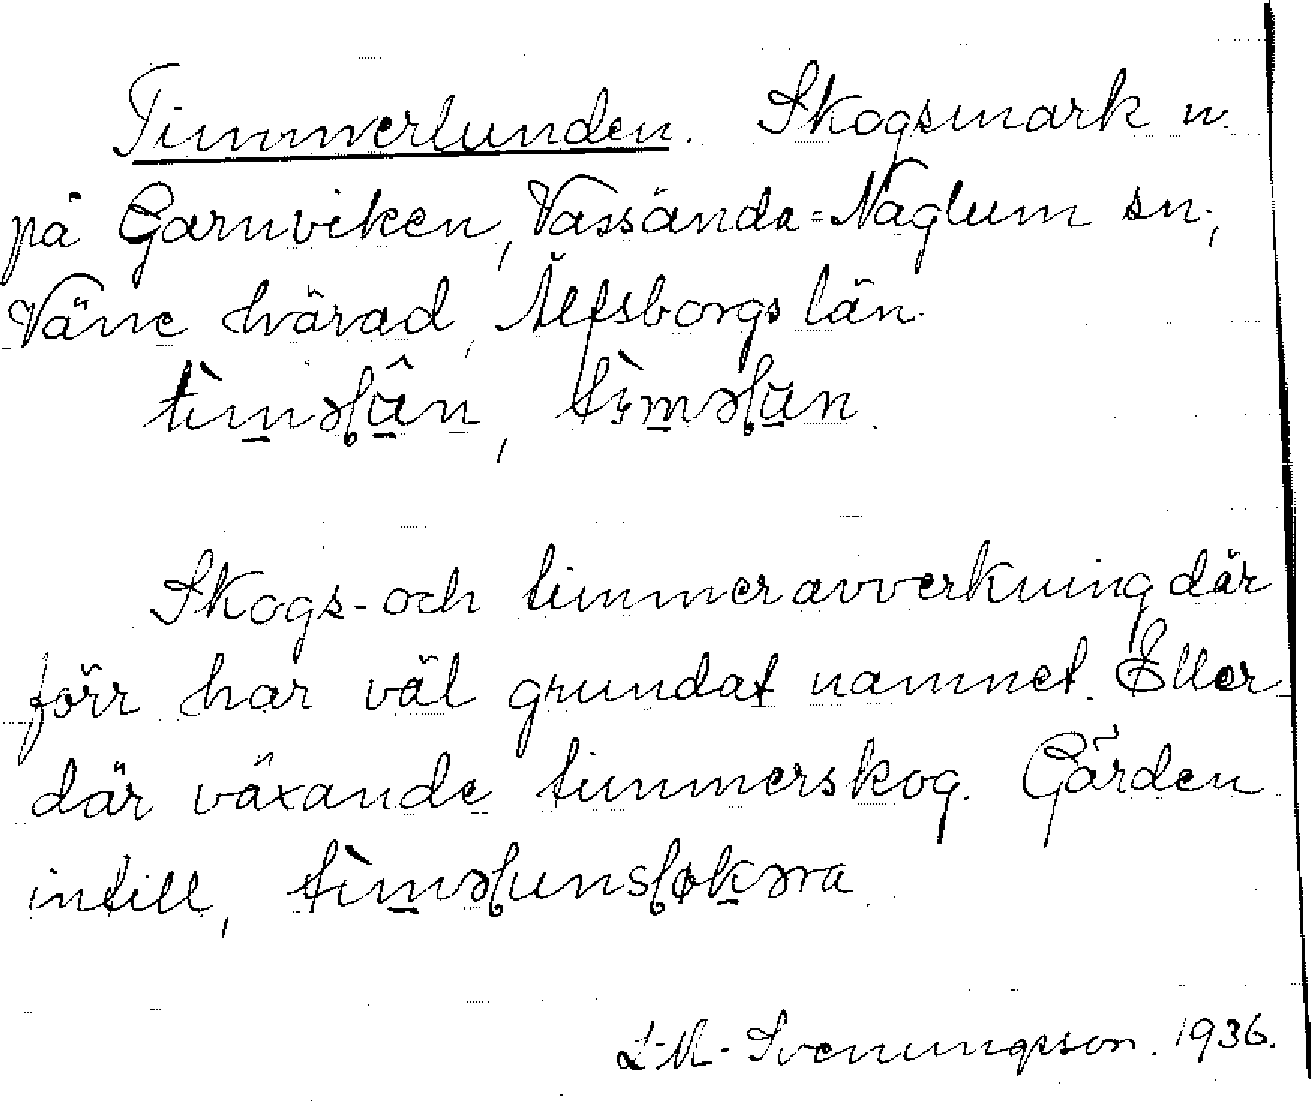 Timmerlunden. Skogsmark n.
på Garnviken, Vassända-Naglum sn.,
Väne härad, Älfsborgs län.
Skogs- och timmeravverkning där
förr har väl grundat namnet. Eller
där växande timmerskog. Gården
intill,
L-M- Svenungsson. 1936.